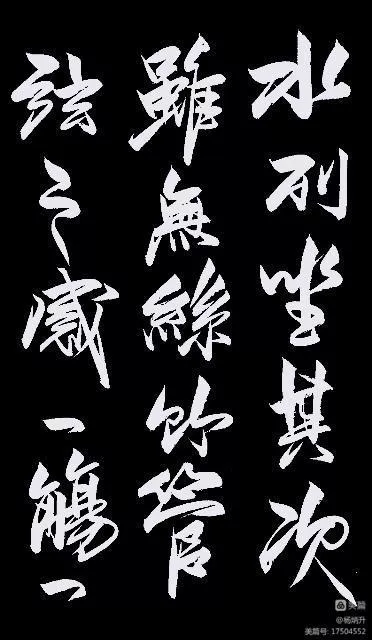 水列坐其次
雖無絲竹管
弦之盛一觴一
美篇
@杨炳升
美篇号: 17504552